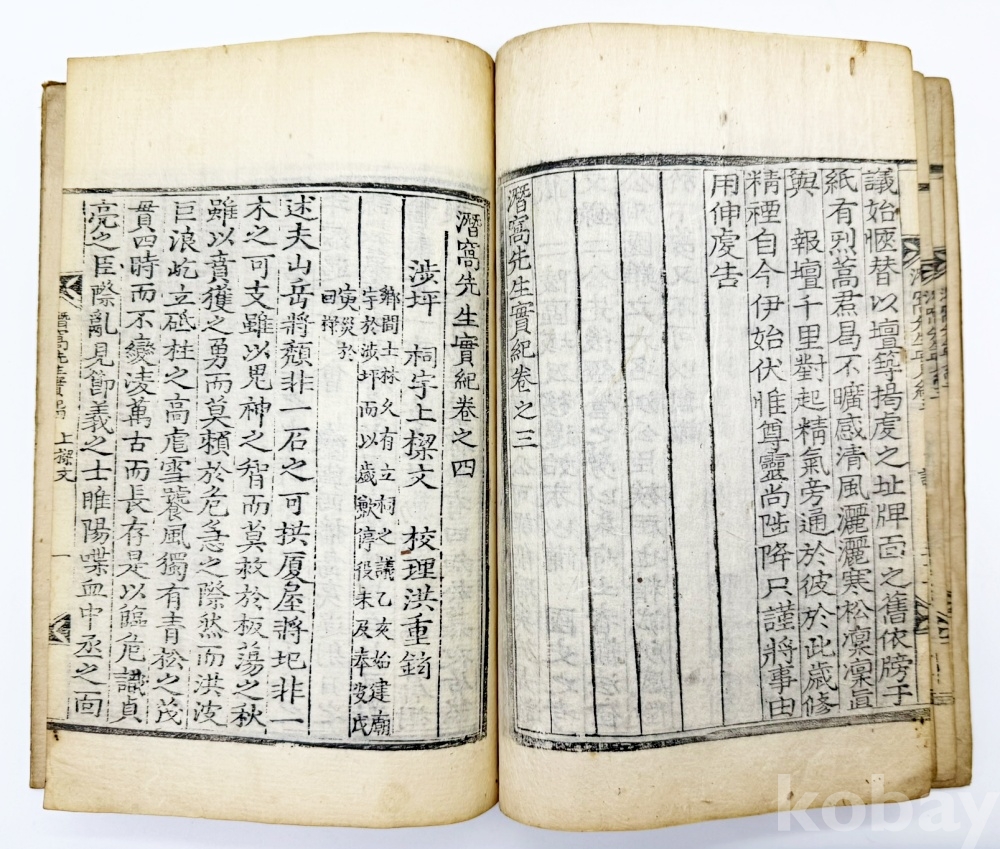 議始愜昔以壇等揭虔之址牌面之舊依膀于
紙有烈蒿焄曷不曠感清風灑灑寒松凜凜眞
與 報壇千里對起精氣旁通於彼於此歲修
精禋自今伊始伏惟尊靈尚陟降只謹將事由
用伸虔告
潛窩先生實紀卷之三
潛窩先生實紀卷之四
涉坪 祠宇上樑文 校理洪重鈞
鄉間士林久有立祠之議乙亥始建廟
宇於涉坪而以歲歉停役未及奉安民
曰禪
述夫山岳將頹非一石之可拱厦屋將圯非一
木之可支雖以鬼神之智而莫救於板蕩之秋
雖以賁獲之勇而莫賴於危急之際然而洪波
巨浪屹立砥柱之高虐雪饕風獨有青松之茂
貫四時而不變凌萬古而長存是以臨危識貞
亮之臣際亂見節義之士睢陽喋血中丞之面
潛窩先生實紀 上樑文 一
kobay